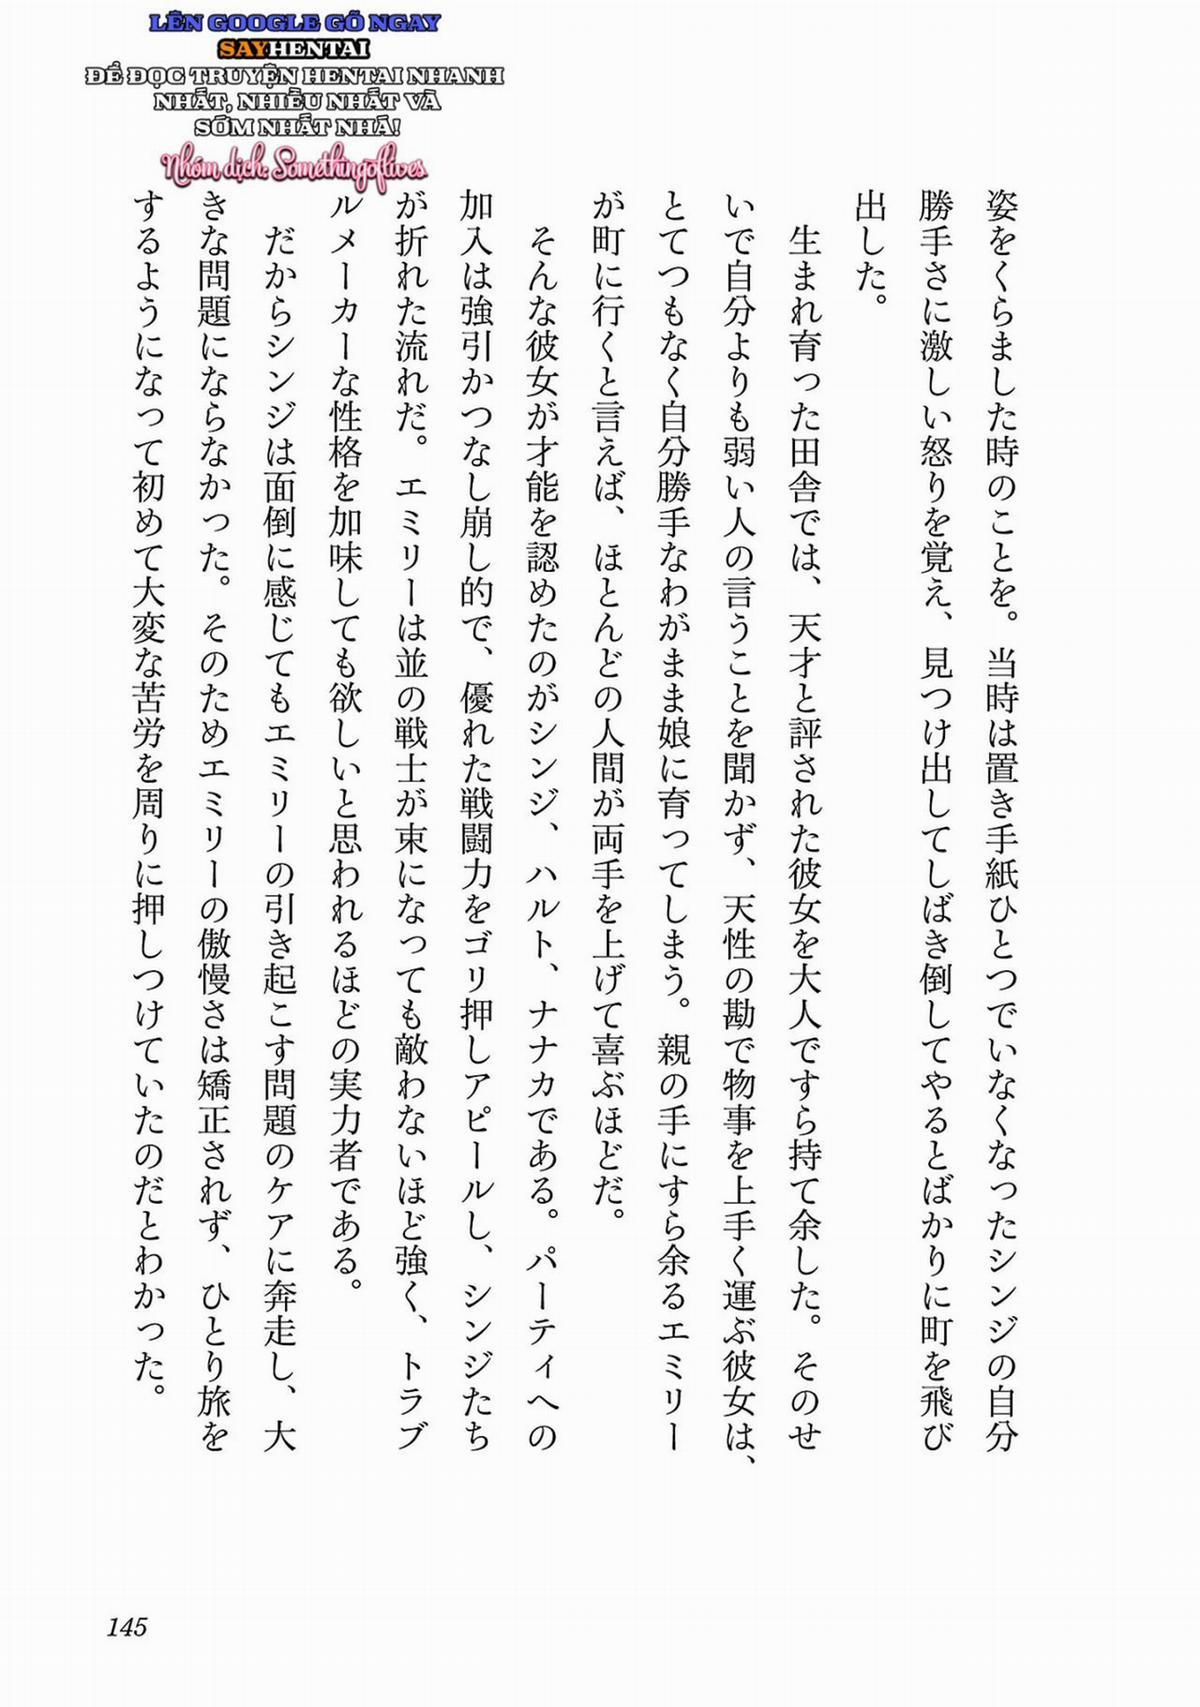 LÊN GOOGLE GÕ NGAY
SAYHENTAI
ĐỂ ĐỌC TRUYỆN HENTAI NHANH
NHẤT, NHIỀU NHẤT VÀ
SỚM NHẤT NHÁ!
Nhóm dịch: Somethingoflives
姿をくらました時のことを。当時は置き手紙ひとつでいなくなったシンジの自分
勝手さに激しい怒りを覚え、見つけ出してしばき倒してやるとばかりに町を飛び
出した。
生まれ育った田舎では、天才と評された彼女を大人ですら持て余した。そのせ
いで自分よりも弱い人の言うことを聞かず、天性の勘で物事を上手く運ぶ彼女は、
とてつもなく自分勝手なわがまま娘に育ってしまう。親の手にすら余るエミリー
が町に行くと言えば、ほとんどの人間が両手を上げて喜ぶほどだ。
そんな彼女が才能を認めたのがシンジ、ハルト、ナナカである。パーティへの
加入は強引かつなし崩し的で、優れた戦闘力をゴリ押しアピールし、シンジたち
が折れた流れだ。エミリーは並の戦士が束になっても敵わないほど強く、トラブ
ルメーカーな性格を加味しても欲しいと思われるほどの実力者である。
だからシンジは面倒に感じてもエミリーの引き起こす問題のケアに奔走し、大
きな問題にならなかった。そのためエミリーの傲慢さは矯正されず、ひとり旅を
するようになって初めて大変な苦労を周りに押しつけていたのだとわかった。
145